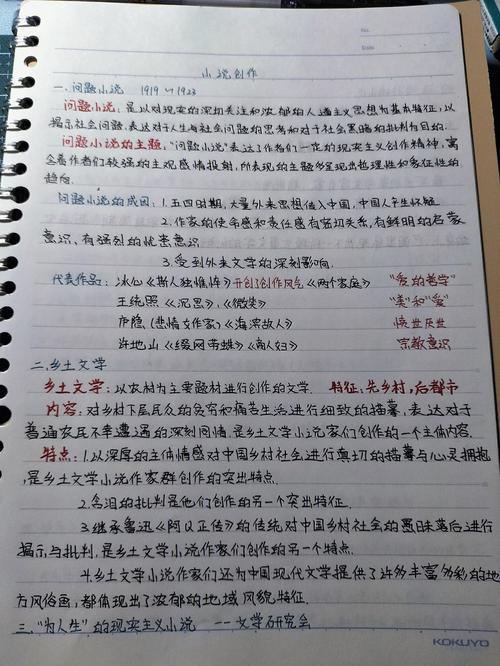 No.
Date
小说创作
一. 问题小说 1919~1923
问题小说：是以对现实的深切关注和浓郁的人道主义思想为基本特征，以
揭示社会问题、表达对于人生与社会问题的思考和对于社会黑暗的批判为目的.
问题小说的主题："问题小说"表达了作者们一定的现实主义创作精神，寓
含着作者们较强的主观感情投射，所表现的主题多呈现出哲理性和多征性的
趋向.
问题小说的成因：1.五四时期，大量外来思想传入中国，中国人产生怀疑
2.作家的使命感和责任感有密切关系，有鲜明的启蒙
意识，有强烈的忧患意识
3.受到外来文学的深刻影响.
代表作品：冰心《斯人独憔悴》开创了创作风气《两个家庭》 "爱的哲学"
王统照《沉思》、《微笑》 "美"和"爱"
庐隐（悲情女作家）《海滨故人》 愤世厌世
许地山《缀网劳蛛》《商人妇》 宗教意识
二. 乡土文学
乡土文学：以农村为主要题材进行创作的文学. 特征：先乡村，后都市
内容：对乡村下层民众的贫穷和痛苦生活进行细致的描摹，表达对于
普通农民不幸遭遇的深刻同情，是乡土文学小说家们创作的一个主体内容.
特点：1.以深厚的主体情感对中国乡村社会进行真切的描摹与心灵拥抱
，是乡土文学小说作家群创作的突出特点.
2.含泪的批判是他们创作的另一个突出特征.
3.继承鲁迅《阿Q正传》的传统对中国乡村社会的愚昧落后进行
揭示与批判，是乡土文学小说作家们创作的另一个特点.
4.乡土文学小说作家们还为中国现代文学提供了许多丰富多彩的地
方风俗画，都体现出了浓郁的地域风貌特征.
三. "为人生"的现实主义小说 -- 文学研究会
KOKUYO